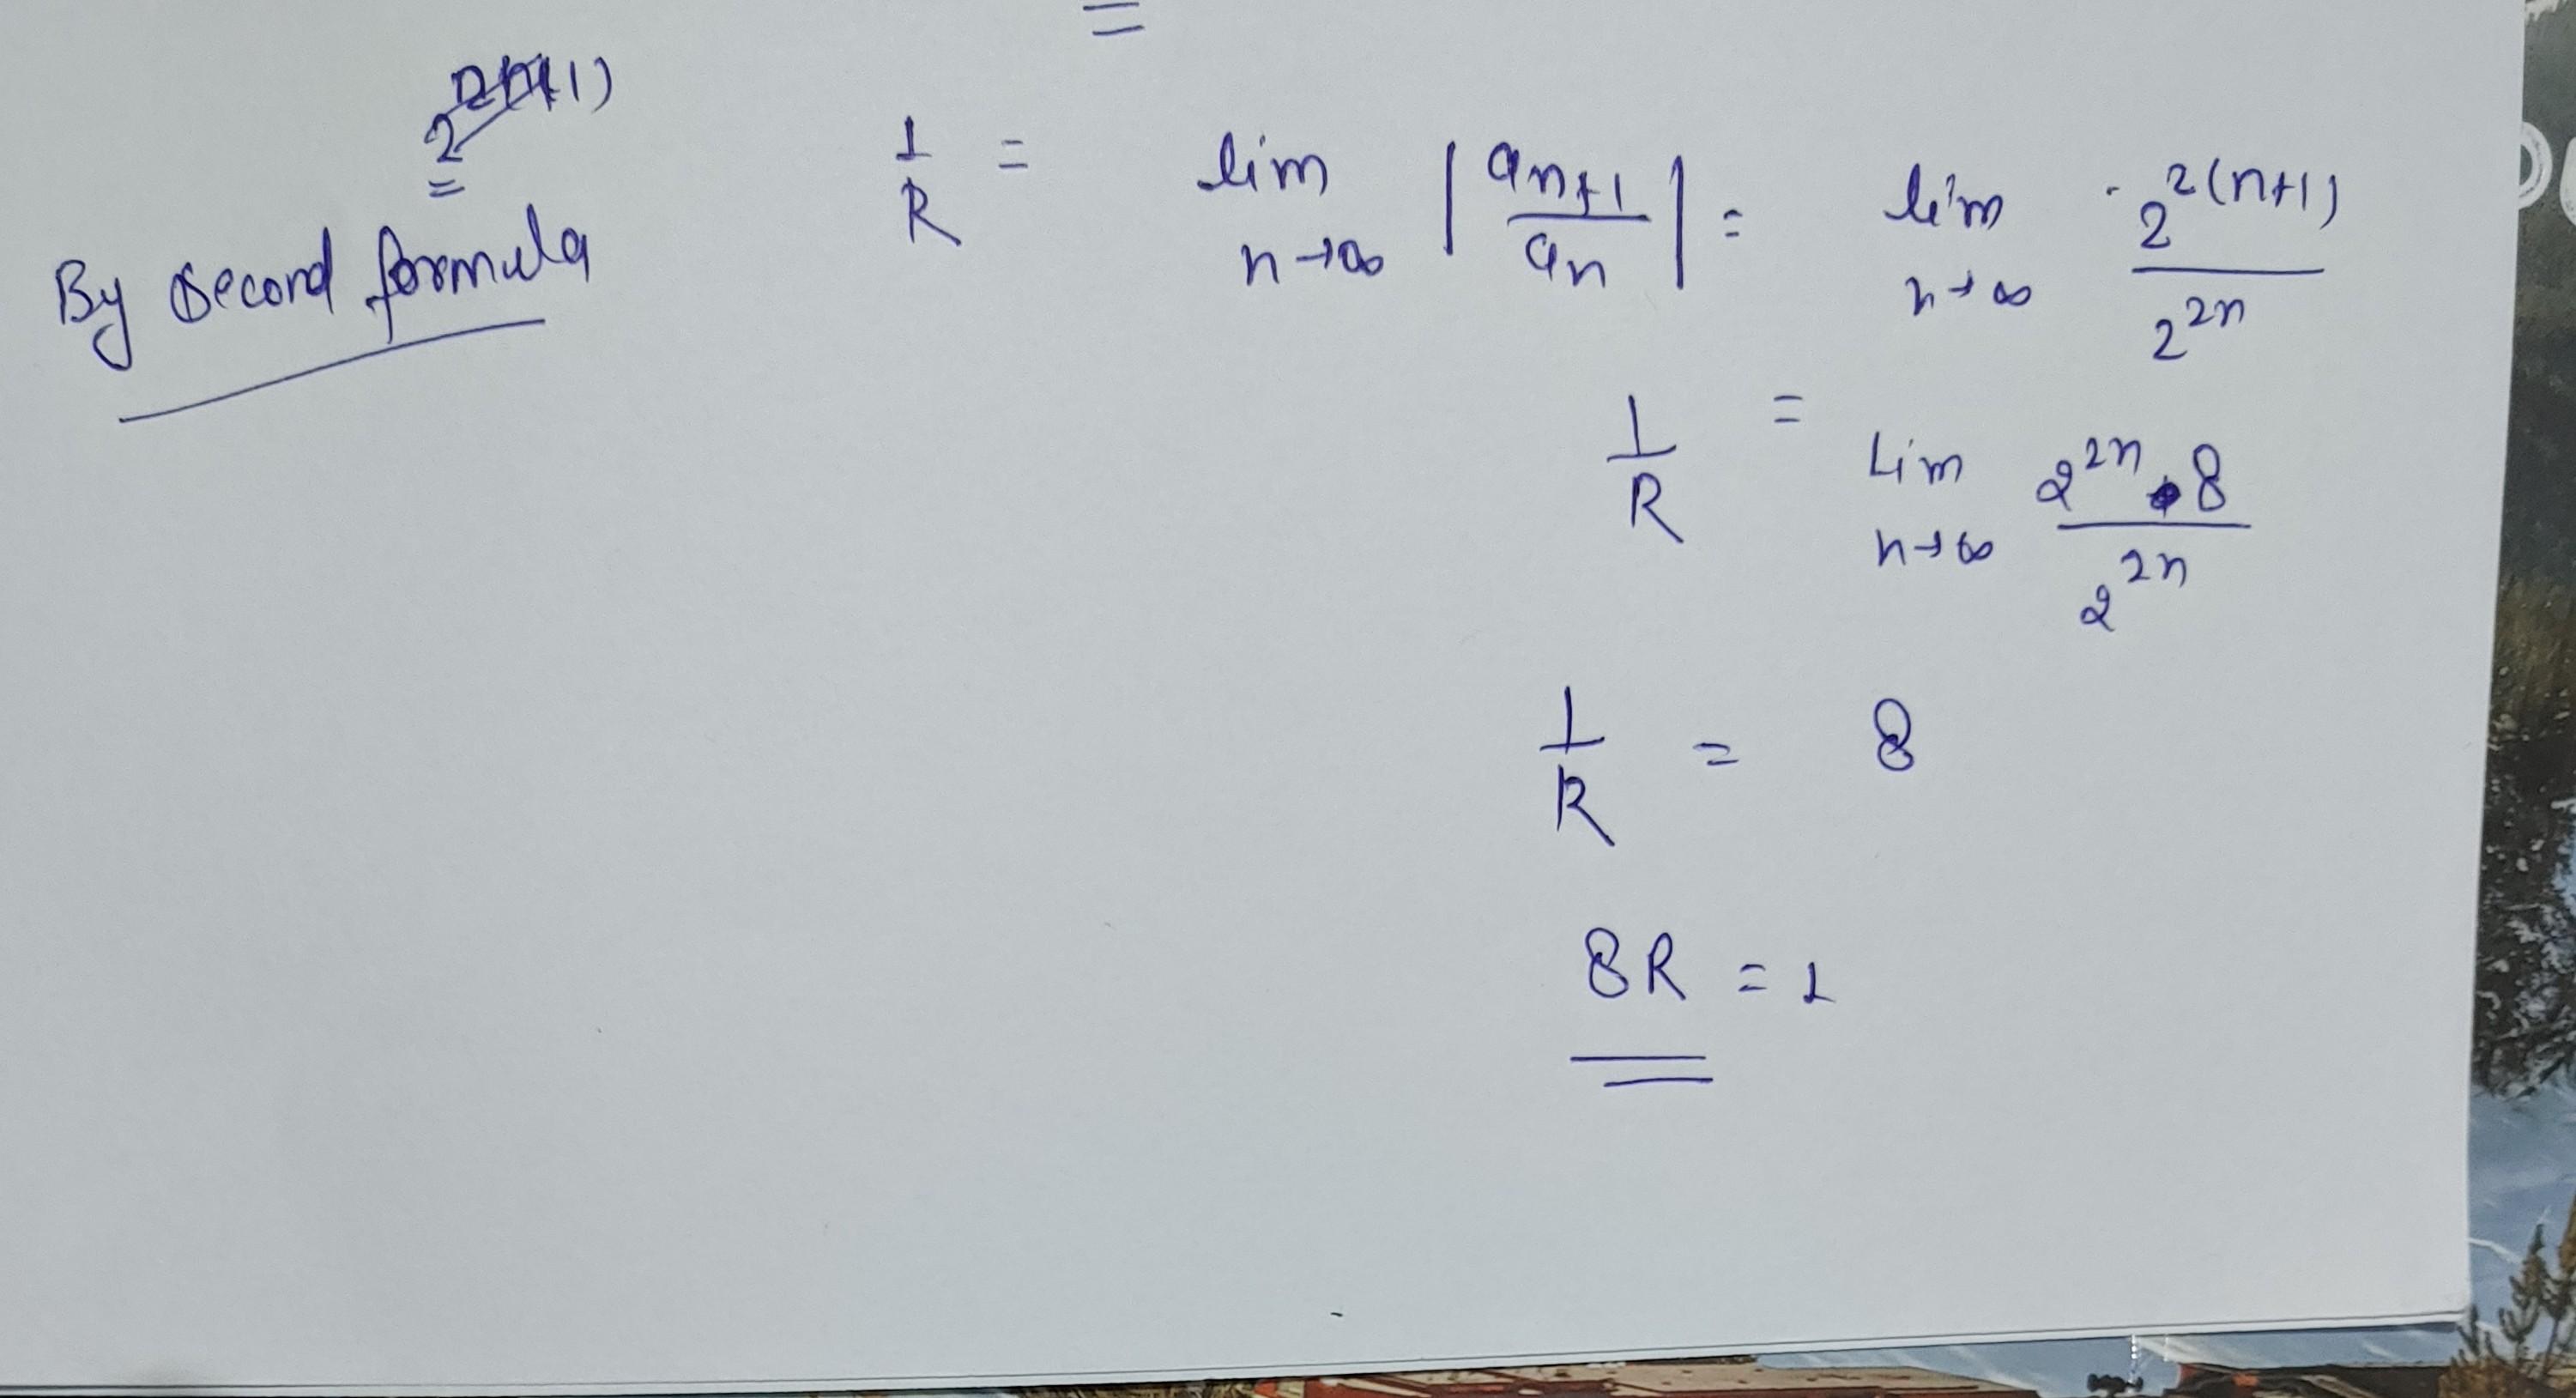 =
2^2(n+1)
=
By second formula
1/R = lim n→∞ |an+1/an| = lim n→∞ 2^2(n+1)/2^2n
1/R = Lim n→∞ 2^2n • 8/2^2n
1/R = 8
8R = 1